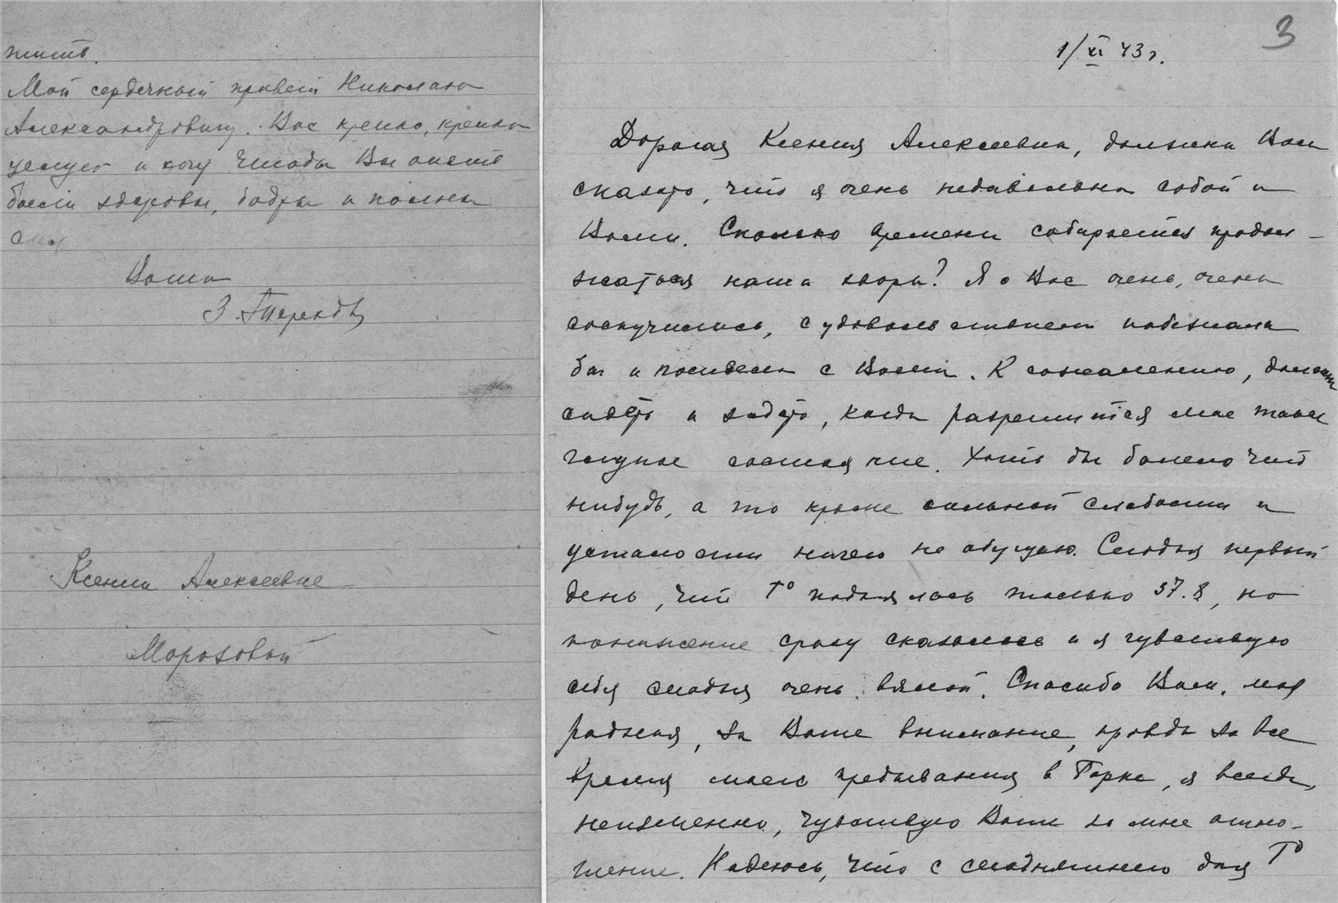 3
1/XI 43 г.
Дорогая Ксения Алексеевна, должна Вам
сказать, что я очень недовольна собой и
Вами. Сколько времени собирается продол-
жаться наша хворь? Я о Вас очень, очень
соскучилась, с удовольствием побежала
бы и посидела с Вами. К сожалению, должна
сидеть и ждать, когда разрешится мое такое
глупое состояние. Хоть бы болело что
нибудь, а то кроме сильной слабости и
усталости ничего не ощущаю. Сегодня первый
день, что Т° поднялась только 37.8, но
понижение сразу сказалось и я чувствую
себя сегодня очень вялой. Спасибо Вам, моя
родная, за Ваше внимание, правда за все
время моего пребывания в Борке, я всегда,
неизменно, чувствую Ваше ко мне отно-
шение. Надеюсь, что с сегодняшнего дня Т°
жить.
Мой сердечный привет Николаю
Александровичу. Вас крепко, крепко
целую и хочу чтобы Вы опять
были здоровы, бодры и полны
сил
Ваша
З.
Ксении Алексеевне
Морозовой